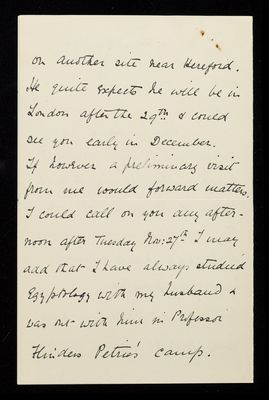 on another site near Hereford.
He quite expects he will be in
London after the 29th & could
see you early in December.
If however a preliminary visit
from me would forward matters.
I could call on you any after-
noon after Tuesday Nov: 27th I may
add that I have always studied
Egyptology with my husband &
was out with him in Professor
Flinders Petrie's camp.